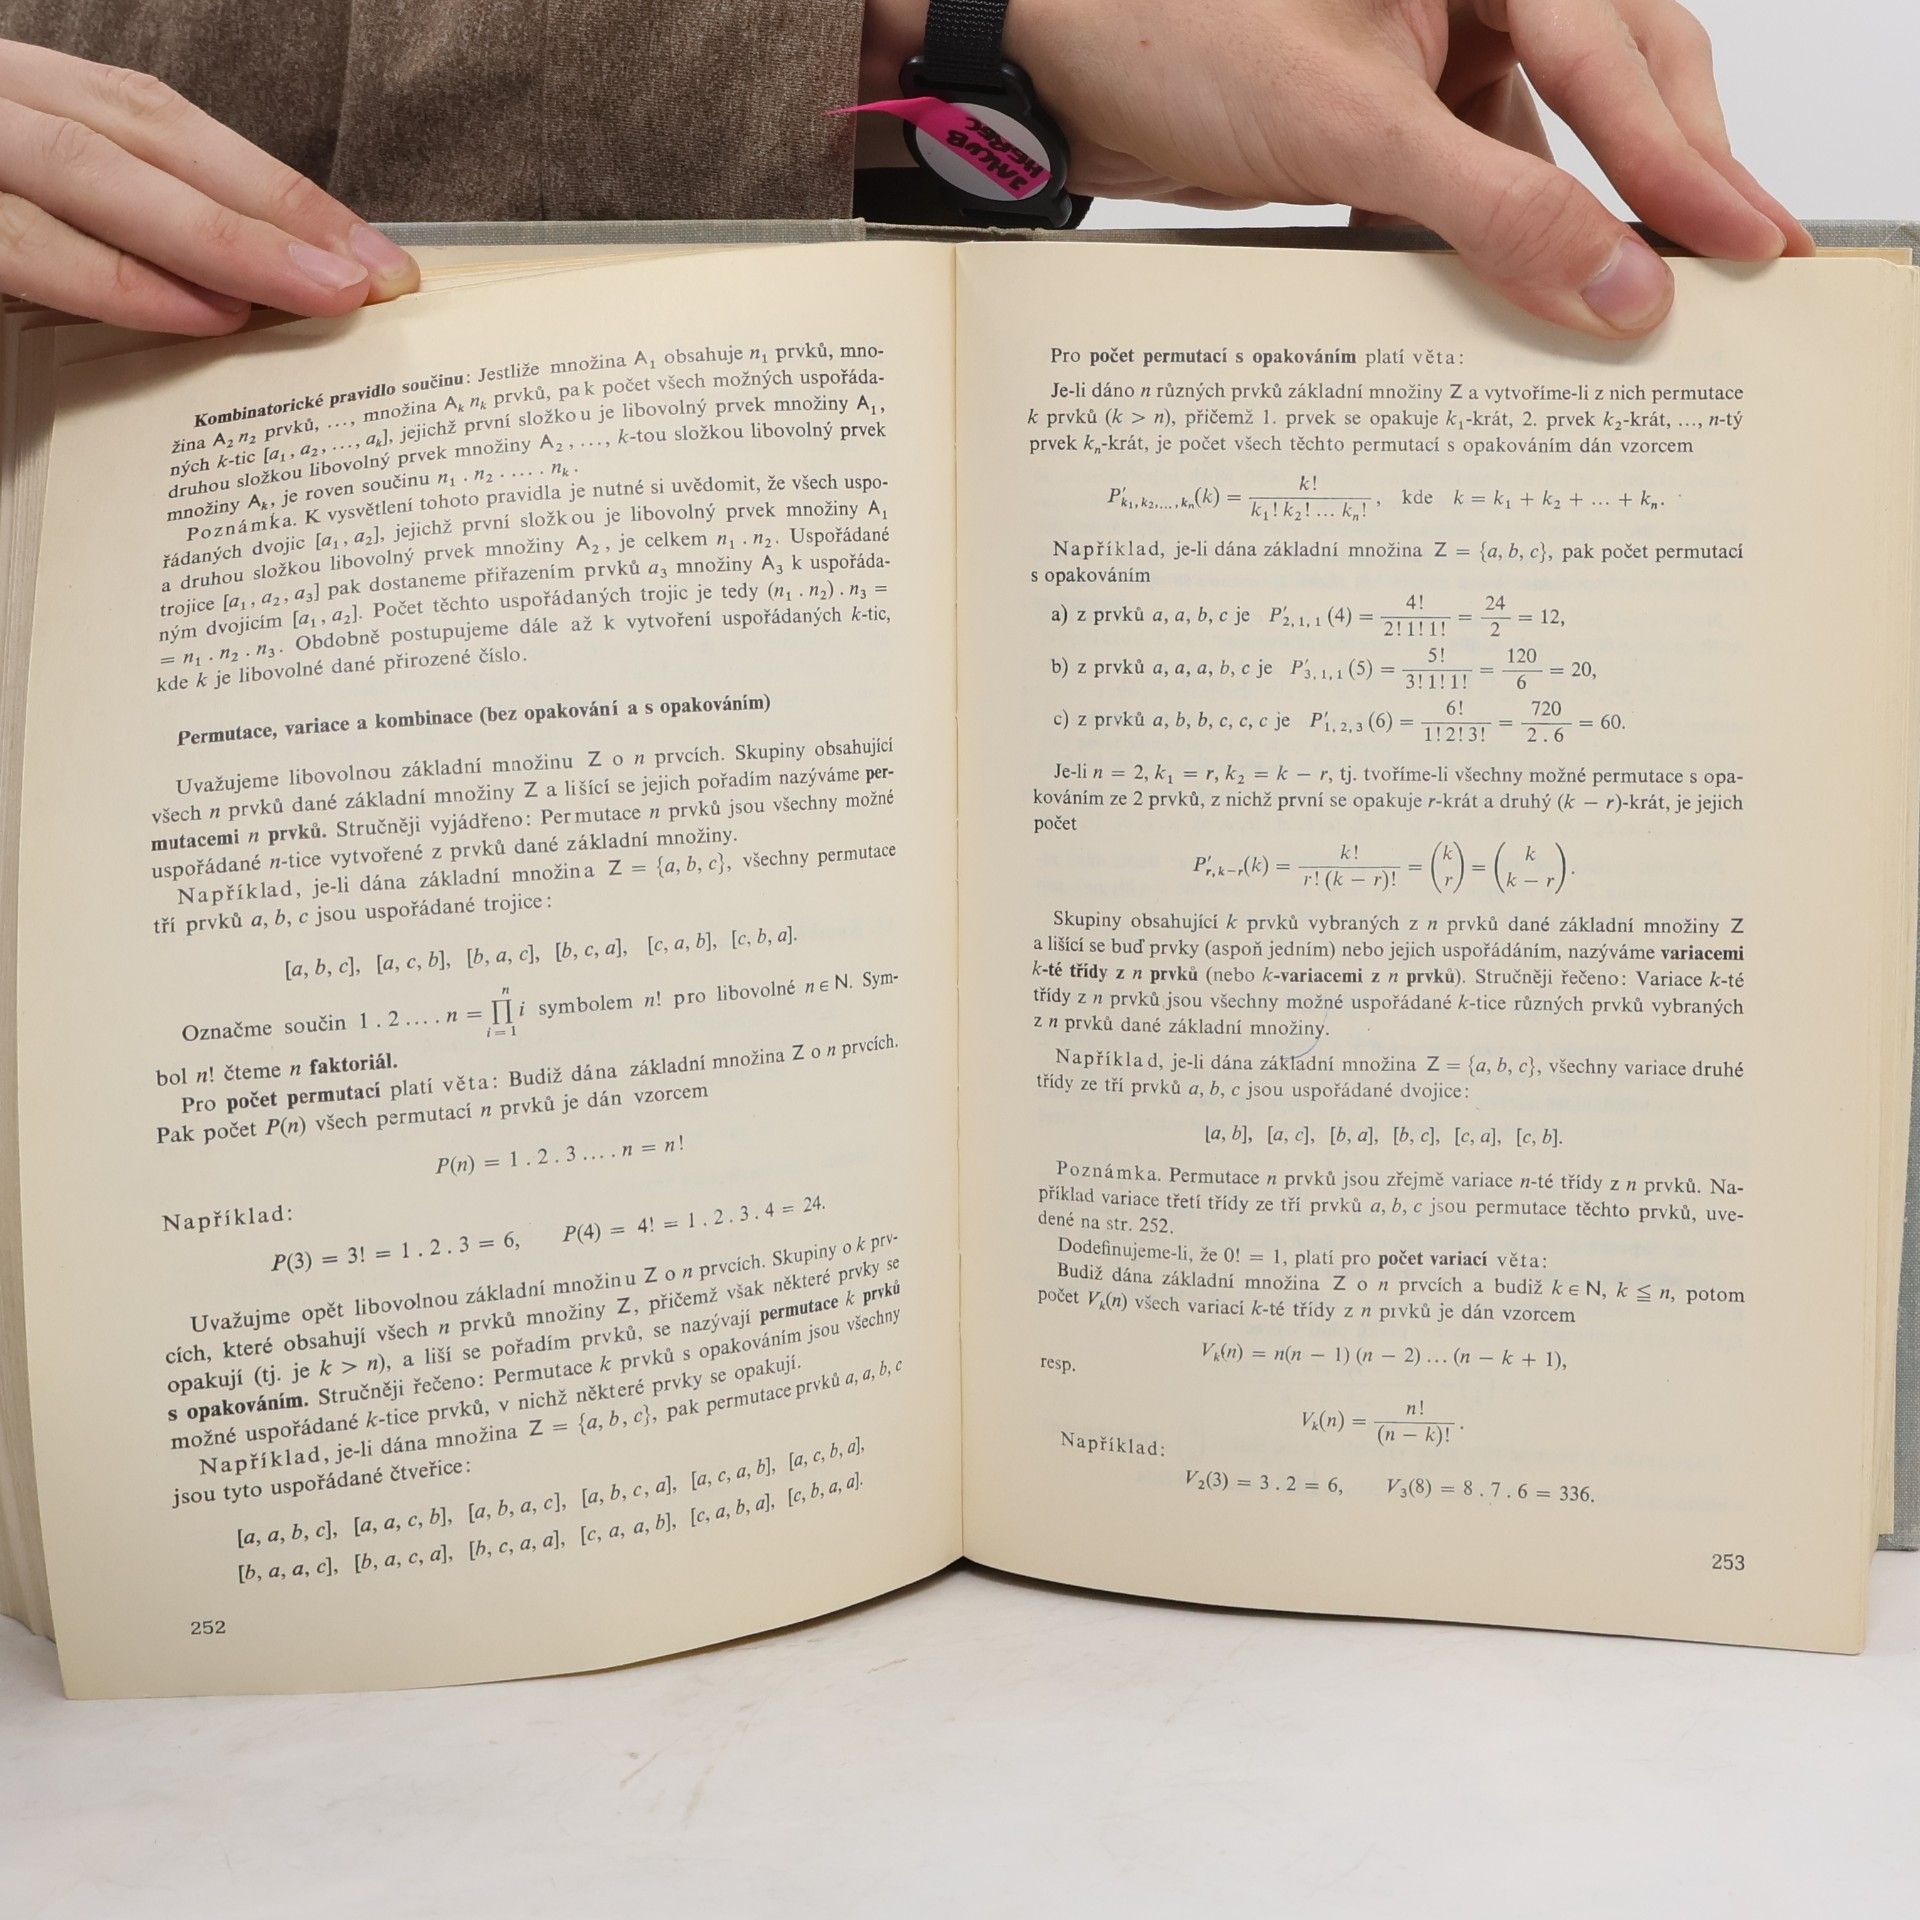 JAKUB
HEREC
Kombinatorické pravidlo součinu: Jestliže množina A₁ obsahuje n₁ prvků, mno-
žina A₂ n₂ prvků, ..., množina Aₖ nₖ prvků, pak počet všech možných uspořáda-
ných k-tic [a₁, a₂, ..., aₖ], jejichž první složkou je libovolný prvek množiny A₁,
druhou složkou libovolný prvek množiny A₂, ..., k-tou složkou libovolný prvek
množiny Aₖ, je roven součinu n₁ . n₂ . ... . nₖ.
Poznámka. K vysvětlení tohoto pravidla je nutné si uvědomit, že všech uspo-
řádaných dvojic [a₁, a₂], jejichž první složkou je libovolný prvek množiny A₁
a druhou složkou libovolný prvek množiny A₂, je celkem n₁ . n₂. Uspořádané
trojice [a₁, a₂, a₃] pak dostaneme přiřazením prvků a₃ množiny A₃ k uspořáda-
ným dvojicím [a₁, a₂]. Počet těchto uspořádaných trojic je tedy (n₁ . n₂) . n₃ =
= n₁ . n₂ . n₃. Obdobně postupujeme dále až k vytvoření uspořádaných k-tic,
kde k je libovolné dané přirozené číslo.
Permutace, variace a kombinace (bez opakování a s opakováním)
Uvažujeme libovolnou základní množinu Z o n prvcích. Skupiny obsahující
všech n prvků dané základní množiny Z a lišící se jejich pořadím nazýváme per-
mutacemi n prvků. Stručněji vyjádřeno: Permutace n prvků jsou všechny možné
uspořádané n-tice vytvořené z prvků dané základní množiny.
Například, je-li dána základní množina Z = {a, b, c}, všechny permutace
tří prvků a, b, c jsou uspořádané trojice:
[a, b, c], [a, c, b], [b, a, c], [b, c, a], [c, a, b], [c, b, a].
Označme součin 1 . 2 .... n = ∏ⁿᵢ₌₁ i symbolem n! pro libovolné n ∈ N. Sym-
bol n! čteme n faktoriál.
Pro počet permutací platí věta: Budiž dána základní množina Z o n prvcích.
Pak počet P(n) všech permutací n prvků je dán vzorcem
P(n) = 1 . 2 . 3 .... n = n!
Například:
P(3) = 3! = 1 . 2 . 3 = 6, P(4) = 4! = 1 . 2 . 3 . 4 = 24.
Uvažujme opět libovolnou základní množinu Z o n prvcích. Skupiny o k prv-
cích, které obsahují všech n prvků množiny Z, přičemž však některé prvky se
opakují (tj. je k > n), a liší se pořadím prvků, se nazývají permutace k prvků
s opakováním. Stručněji řečeno: Permutace k prvků s opakováním jsou všechny
možné uspořádané k-tice prvků, v nichž některé prvky se opakují.
Například, je-li dána množina Z = {a, b, c}, pak permutace prvků a, a, b, c
jsou tyto uspořádané čtveřice:
[a, a, b, c], [a, a, c, b], [a, b, a, c], [a, b, c, a], [a, c, a, b], [a, c, b, a],
[b, a, a, c], [b, a, c, a], [b, c, a, a], [c, a, a, b], [c, a, b, a], [c, b, a, a].
252
Pro počet permutací s opakováním platí věta:
Je-li dáno n různých prvků základní množiny Z a vytvoříme-li z nich permutace
k prvků (k > n), přičemž 1. prvek se opakuje k₁-krát, 2. prvek k₂-krát, ..., n-tý
prvek kₙ-krát, je počet všech těchto permutací s opakováním dán vzorcem
P′k₁,k₂,...,kₙ(k) = k! / (k₁! k₂! ... kₙ!), kde k = k₁ + k₂ + ... + kₙ.
Například, je-li dána základní množina Z = {a, b, c}, pak počet permutací
s opakováním
a) z prvků a, a, b, c je P′₂,₁,₁ (4) = 4! / 2! 1! 1! = 24 / 2 = 12,
b) z prvků a, a, a, b, c je P′₃,₁,₁ (5) = 5! / 3! 1! 1! = 120 / 6 = 20,
c) z prvků a, b, b, c, c, c je P′₁,₂,₃ (6) = 6! / 1! 2! 3! = 720 / 2 . 6 = 60.
Je-li n = 2, k₁ = r, k₂ = k − r, tj. tvoříme-li všechny možné permutace s opa-
kováním ze 2 prvků, z nichž první se opakuje r-krát a druhý (k − r)-krát, je jejich
počet
P′r,k−r(k) = k! / r! (k − r)! = (k r) = (k k − r).
Skupiny obsahující k prvků vybraných z n prvků dané základní množiny Z
a lišící se buď prvky (aspoň jedním) nebo jejich uspořádáním, nazýváme variacemi
k-té třídy z n prvků (nebo k-variacemi z n prvků). Stručněji řečeno: Variace k-té
třídy z n prvků jsou všechny možné uspořádané k-tice různých prvků vybraných
z n prvků dané základní množiny.
Například, je-li dána základní množina Z = {a, b, c}, všechny variace druhé
třídy ze tří prvků a, b, c jsou uspořádané dvojice:
[a, b], [a, c], [b, a], [b, c], [c, a], [c, b].
Poznámka. Permutace n prvků jsou zřejmě variace n-té třídy z n prvků. Na-
příklad variace třetí třídy ze tří prvků a, b, c jsou permutace těchto prvků, uve-
dené na str. 252.
Dodefinujeme-li, že 0! = 1, platí pro počet variací věta:
Budiž dána základní množina Z o n prvcích a budiž k ∈ N, k ≦ n, potom
počet Vₖ(n) všech variací k-té třídy z n prvků je dán vzorcem
Vₖ(n) = n(n − 1) (n − 2) ... (n − k + 1),
resp.
Vₖ(n) = n! / (n − k)! .
Například:
V₂(3) = 3 . 2 = 6, V₃(8) = 8 . 7 . 6 = 336.
253